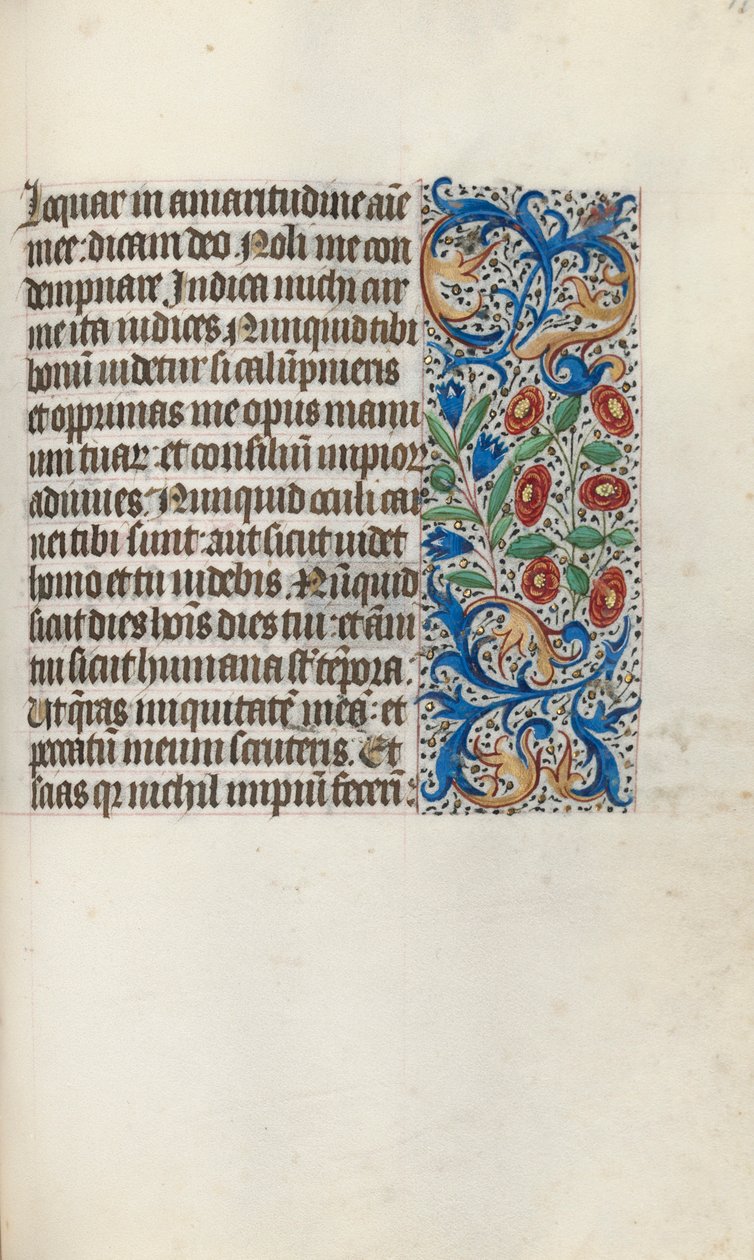 loquar in amaritudine aīe
mee: dicam deo. Noli me con
dempnare Indica michi cur
me ita iudices. Nunquid tibi
bonū uidetur si calūpnieris
et opprimas me opus manu
um tuaꝝ: et consiliū impioꝝ
adiuues. Nunquid oculi car
nei tibi sunt: aut sicut uidet
homo et tu uidebis. Nūquid
sicut dies hoīs dies tui: et āni
tui sicut humana st̄ tēpora.
Ut q̄ras iniquitatē meā: et
peccatū meum scruteris. Et
scias qꝛ nichil impiū fecerī: